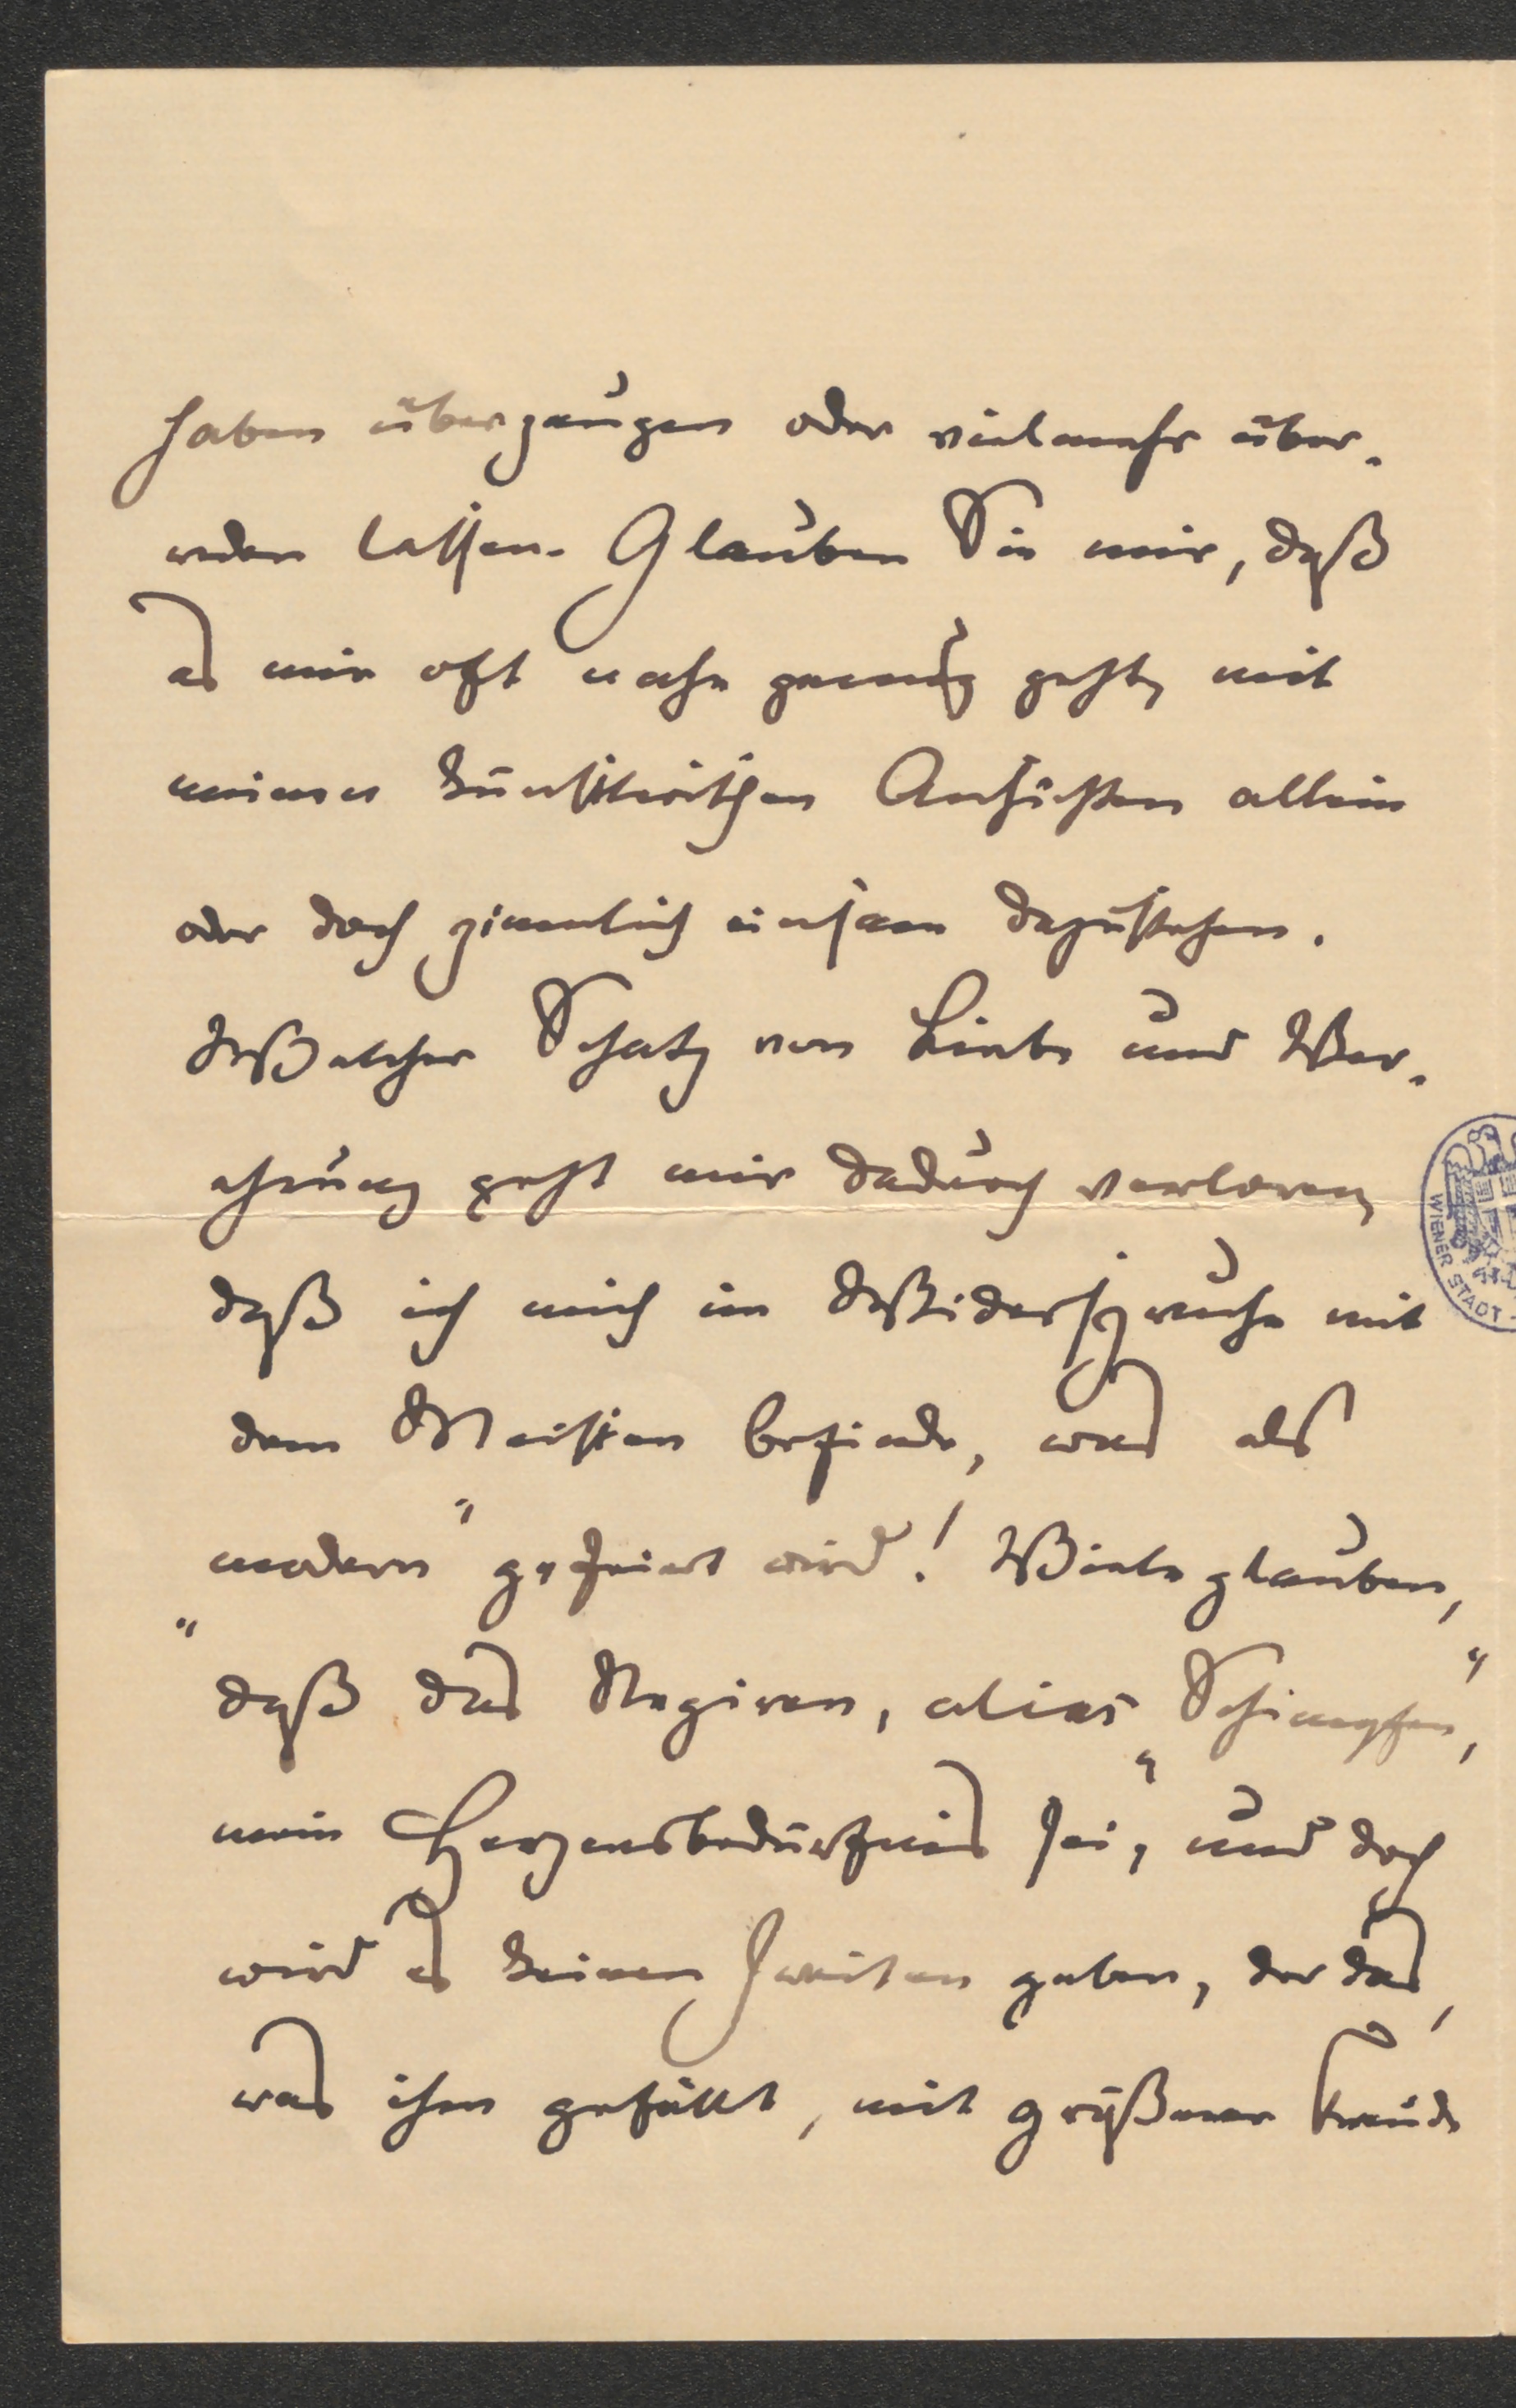 haben überzeugen oder vielmehr über-
reden lassen. Glauben Sie mir, daß
es mir oft nahe genug geht, mit
meinen künstlerischen Ansichten allein
oder doch ziemlich einsam dazustehen.
Welcher Schatz von Liebe und Ver-
ehrung geht mir dadurch verloren,
daß ich mich im Widerspruche mit
dem Meisten befinde, was als
„modern“ gefeiert wird! Viele glauben,
daß das Negiren, alias „Schimpfen“,
mein Herzensbedürfnis sei, und doch
wird es keinen Zweiten geben, der das,
was ihm gefällt, mit größerer Freude
WIENER STADT-